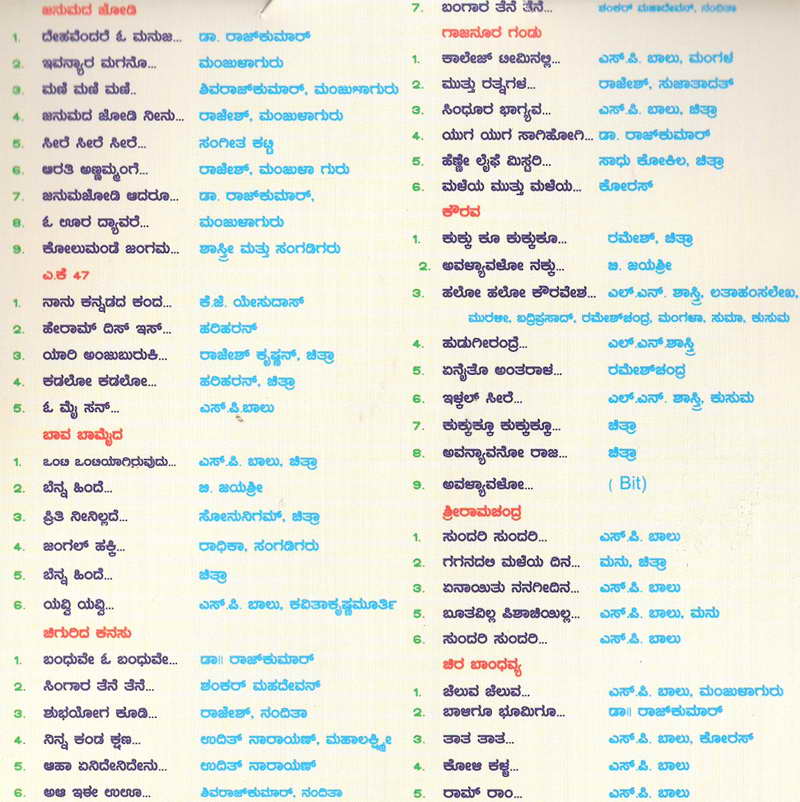 ಜನುಮದ ಜೋಡಿ
1. ದೇಹವೆಂದರೆ ಓ ಮನುಜ... ಡಾ. ರಾಜ್‌ಕುಮಾರ್
2. ಇವನ್ಯಾರ ಮಗನೊ... ಮಂಜುಳಾಗುರು
3. ಮಣಿ ಮಣಿ ಮಣಿ.. ಶಿವರಾಜ್‌ಕುಮಾರ್, ಮಂಜುಳಾಗುರು
4. ಜನುಮದ ಜೋಡಿ ನೀನು... ರಾಜೇಶ್, ಮಂಜುಳಾಗುರು
5. ಸೀರೆ ಸೀರೆ ಸೀರೆ... ಸಂಗೀತ ಕಟ್ಟಿ
6. ಆರತಿ ಅಣ್ಣಮ್ಮಂಗೆ... ರಾಜೇಶ್, ಮಂಜುಳಾ ಗುರು
7. ಜನುಮಜೋಡಿ ಆದರೂ... ಡಾ. ರಾಜ್‌ಕುಮಾರ್,
8. ಓ ಊರ ದ್ಯಾವರೆ... ಮಂಜುಳಾಗುರು
9. ಕೋಲುಮಂಡೆ ಜಂಗಮ... ಶಾಸ್ತ್ರೀ ಮತ್ತು ಸಂಗಡಿಗರು
ಎ.ಕೆ 47
1. ನಾನು ಕನ್ನಡದ ಕಂದ... ಕೆ.ಜೆ. ಯೇಸುದಾಸ್
2. ಹೇರಾಮ್ ದಿಸ್ ಇಸ್... ಹರಿಹರನ್
3. ಯಾರಿ ಅಂಜುಬುರುಕಿ... ರಾಜೇಶ್ ಕೃಷ್ಣನ್, ಚಿತ್ರಾ
4. ಕಡಲೋ ಕಡಲೋ... ಹರಿಹರನ್, ಚಿತ್ರಾ
5. ಓ ಮೈ ಸನ್... ಎಸ್.ಪಿ.ಬಾಲು
ಬಾವ ಬಾಮೈದ
1. ಒಂಟಿ ಒಂಟಿಯಾಗಿರುವುದು... ಎಸ್.ಪಿ. ಬಾಲು, ಚಿತ್ರಾ
2. ಬೆನ್ನ ಹಿಂದೆ... ಬಿ. ಜಯಶ್ರೀ
3. ಪ್ರಿತಿ ನೀನಿಲ್ಲದೆ... ಸೋನುನಿಗಮ್, ಚಿತ್ರಾ
4. ಜಂಗಲ್ ಹಕ್ಕಿ... ರಾಧಿಕಾ, ಸಂಗಡಿಗರು
5. ಬೆನ್ನ ಹಿಂದೆ... ಚಿತ್ರಾ
6. ಯವ್ವಿ ಯವ್ವಿ... ಎಸ್.ಪಿ. ಬಾಲು, ಕವಿತಾಕೃಷ್ಣಮೂರ್ತಿ
ಚಿಗುರಿದ ಕನಸು
1. ಬಂಧುವೇ ಓ ಬಂಧುವೇ... ಡಾ|| ರಾಜ್‌ಕುಮಾರ್
2. ಸಿಂಗಾರ ತೆನೆ ತೆನೆ... ಶಂಕರ್ ಮಹದೇವನ್
3. ಶುಭಯೋಗ ಕೂಡಿ... ರಾಜೇಶ್, ನಂದಿತಾ
4. ನಿನ್ನ ಕಂಡ ಕ್ಷಣ... ಉದಿತ್ ನಾರಾಯಣ್, ಮಹಾಲಕ್ಷ್ಮೀ
5. ಆಹಾ ಏನಿದೇನಿದೇನು... ಉದಿತ್ ನಾರಾಯಣ್
6. ಅಆ ಇಈ ಉಊ... ಶಿವರಾಜ್‌ಕುಮಾರ್, ನಂದಿತಾ
7. ಬಂಗಾರ ತೆನೆ ತೆನೆ... ಶಂಕರ್ ಮಹಾದೇವನ್, ನಂದಿತಾ
ಗಾಜನೂರ ಗಂಡು
1. ಕಾಲೇಜ್ ಟೀಮಿನಲ್ಲಿ... ಎಸ್.ಪಿ. ಬಾಲು, ಮಂಗಳ
2. ಮುತ್ತು ರತ್ನಗಳ... ರಾಜೇಶ್, ಸುಜಾತಾದತ್
3. ಸಿಂಧೂರ ಭಾಗ್ಯವ... ಎಸ್.ಪಿ. ಬಾಲು, ಚಿತ್ರಾ
4. ಯುಗ ಯುಗ ಸಾಗಿಹೋಗಿ... ಡಾ. ರಾಜ್‌ಕುಮಾರ್
5. ಹೆಣ್ಣೇ ಲೈಫೆ ಮಿಸ್ಟರಿ... ಸಾಧು ಕೋಕಿಲ, ಚಿತ್ರಾ
6. ಮಳೆಯ ಮುತ್ತು ಮಳೆಯ... ಕೋರಸ್
ಕೌರವ
1. ಕುಕ್ಕು ಕೂ ಕುಕ್ಕುಕೂ... ರಮೇಶ್, ಚಿತ್ರಾ
2. ಅವಳ್ಯಾವಳೋ ನಕ್ಕು... ಬಿ. ಜಯಶ್ರೀ
3. ಹಲೋ ಹಲೋ ಕೌರವೇಶ... ಎಲ್.ಎನ್. ಶಾಸ್ತ್ರಿ, ಲತಾಹಂಸಲೇಖ,
ಮುರಳೀ, ಬದ್ರಿಪ್ರಸಾದ್, ರಮೇಶ್‌ಚಂದ್ರ, ಮಂಗಳಾ, ಸುಮಾ, ಕುಸುಮ
4. ಹುಡುಗೀರಂದ್ರೆ... ಎಲ್.ಎನ್.ಶಾಸ್ತ್ರಿ
5. ಏನೈತೊ ಅಂತರಾಳ... ರಮೇಶ್‌ಚಂದ್ರ
6. ಇಳ್ಕಲ್ ಸೀರೆ... ಎಲ್.ಎನ್. ಶಾಸ್ತ್ರಿ, ಕುಸುಮ
7. ಕುಕ್ಕುಕ್ಕೂ ಕುಕ್ಕುಕ್ಕೂ... ಚಿತ್ರಾ
8. ಅವನ್ಯಾವನೋ ರಾಜ... ಚಿತ್ರಾ
9. ಅವಳ್ಯಾವಳೋ... ( Bit)
ಶ್ರೀರಾಮಚಂದ್ರ
1. ಸುಂದರಿ ಸುಂದರಿ... ಎಸ್.ಪಿ. ಬಾಲು
2. ಗಗನದಲಿ ಮಳೆಯ ದಿನ... ಮನು, ಚಿತ್ರಾ
3. ಏನಾಯಿತು ನನಗೀದಿನ... ಎಸ್.ಪಿ. ಬಾಲು
5. ಬೂತವಿಲ್ಲ ಪಿಶಾಚಿಯಿಲ್ಲ... ಎಸ್.ಪಿ. ಬಾಲು, ಮನು
6. ಸುಂದರಿ ಸುಂದರಿ... ಎಸ್.ಪಿ. ಬಾಲು
ಚಿರ ಬಾಂಧವ್ಯ
1. ಚೆಲುವ ಚೆಲುವ... ಎಸ್.ಪಿ. ಬಾಲು, ಮಂಜುಳಾಗುರು
2. ಬಾಳಿಗೂ ಭೂಮಿಗೂ... ಡಾ|| ರಾಜ್‌ಕುಮಾರ್
3. ತಾತ ತಾತ... ಎಸ್.ಪಿ. ಬಾಲು, ಕೋರಸ್
4. ಕೋಳಿ ಕಳ್ಳ... ಎಸ್.ಪಿ. ಬಾಲು
5. ರಾಮ್ ರಾಂ... ಎಸ್.ಪಿ. ಬಾಲು